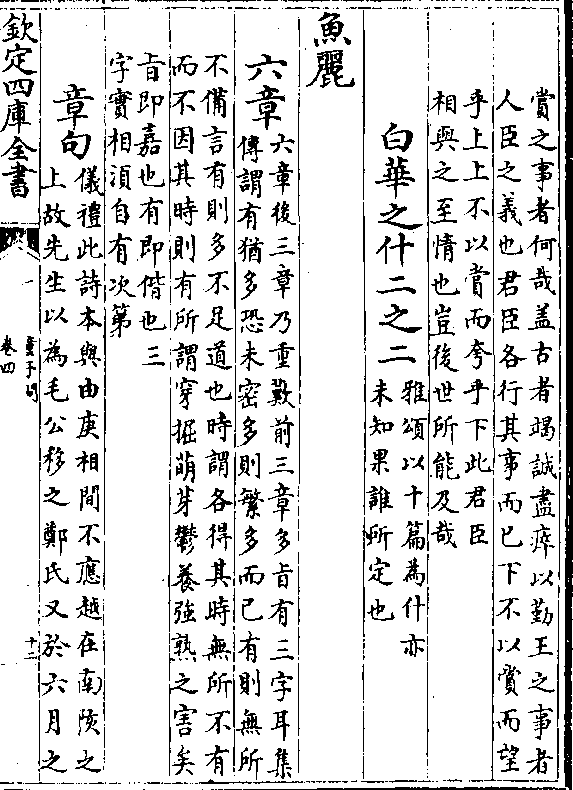 賞之事者何哉盖古者竭誠盡瘁以勤王之事者
人臣之義也君臣各行其事而已下不以賞而望
乎上上不以賞而夸乎下此君臣
相與之至情也豈後世所能及哉
白華之什二之二
雅頌以十篇為什亦
未知果誰所定也
魚麗
六章
六章後三章乃重歎前三章多旨有三字耳集
傳謂有猶多恐未密多則繁多而已有則無所
不備言有則多不足道也時謂各得其時無所不有
而不因其時則有所謂穿掘萌芽鬱養強熟之害矣
旨即嘉也有即偕也三
字實相湏自有次第
章句
儀禮此詩本與由庚相間不應越在南陔之
上故先生以為毛公移之鄭氏又於六月之
欽定四庫全書
童子問
卷四
十二